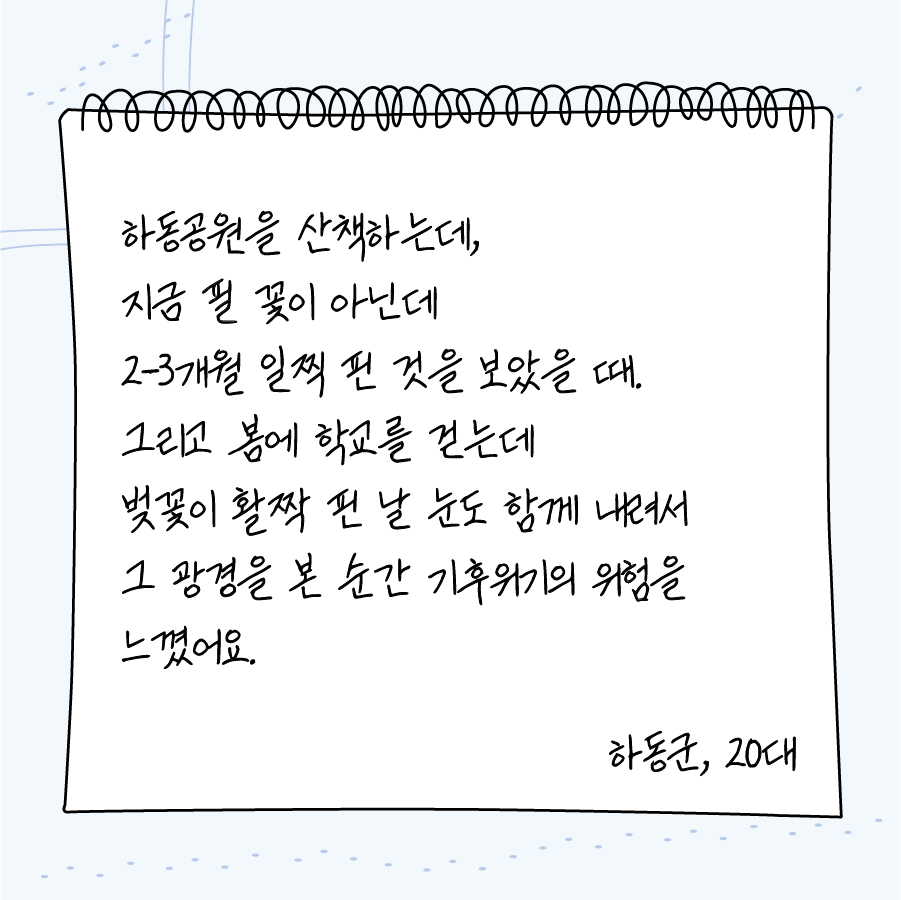 하동공원을 산책하는데,
지금 필 꽃이 아닌데
2-3개월 일찍 핀 것을 보았을 때.
그리고 봄에 학교를 걷는데
벚꽃이 활짝 핀 날 눈도 함께 내려서
그 광경을 본 순간 기후위기의 위험을
느꼈어요.
하동군, 20대